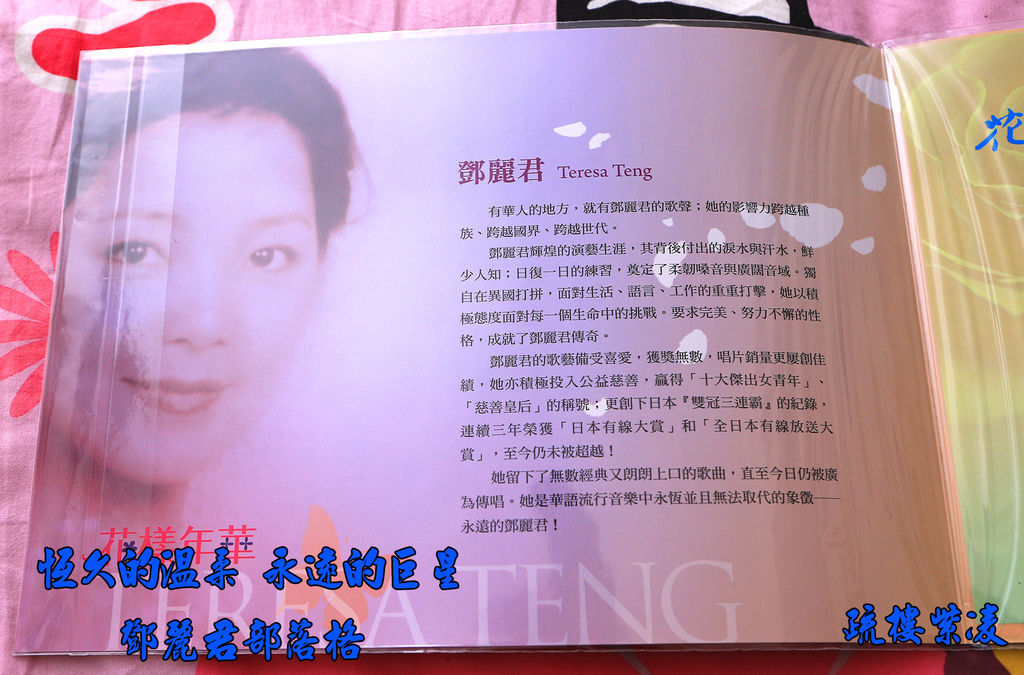 鄧麗君 Teresa Teng
有華人的地方，就有鄧麗君的歌聲；她的影響力跨越種
族、跨越國界、跨越世代。
鄧麗君輝煌的演藝生涯，其背後付出的淚水與汗水，鮮
少人知；日復一日的練習，奠定了柔韌嗓音與廣闊音域。獨
自在異國打拼，面對生活、語言、工作的重重打擊，她以積
極態度面對每一個生命中的挑戰。要求完美、努力不懈的性
格，成就了鄧麗君傳奇。
鄧麗君的歌藝備受喜愛，獲獎無數，唱片銷量更屢創佳
績，她亦積極投入公益慈善，贏得「十大傑出女青年」、
「慈善皇后」的稱號；更創下日本『雙冠三連霸』的紀錄，
連續三年榮獲「日本有線大賞」和「全日本有線放送大
賞」，至今仍未被超越！
她留下了無數經典又朗朗上口的歌曲，直至今日仍被廣
為傳唱。她是華語流行音樂中永恆並且無法取代的象徵——
永遠的鄧麗君！
花
花樣年華
TERESA TENG
恆久的溫柔 永遠的巨星
鄧麗君部落格
疏樓紫凌